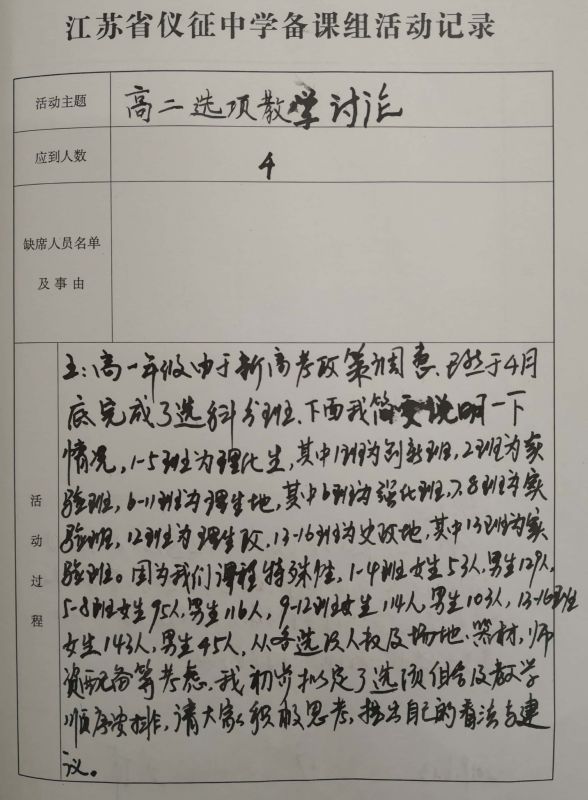 江苏省仪征中学备课组活动记录
活动主题
高二选项教学讨论
应到人数
4
缺席人员名单
及事由
活动过程
王:高一年级由于新高考政策调整、已然于4月
底完成了选科分班.下面我简要说明一下
情况,1-5班为理化生,其中1班为创新班,2班为实
验班,6-11班为理生地,其中6班为强化班,7.8班为实
验班,12班为理生政,13-16班为史政地,其中13班为实
验班。因为我们课程特殊性,1-4班女生53人,男生129人,
5-8班女生95人,男生116人,9-12班女生114人,男生103人,13-16班
女生143人,男生45人,从各选项人数及场地.器材,师
资配备等考虑.我初步拟定了选项组合及教学
顺序安排,请大家积极思考,提出自己的看法与建
议。